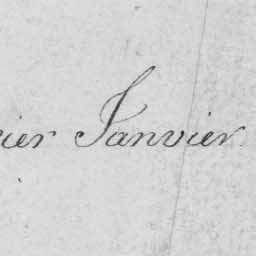 ier Janvier